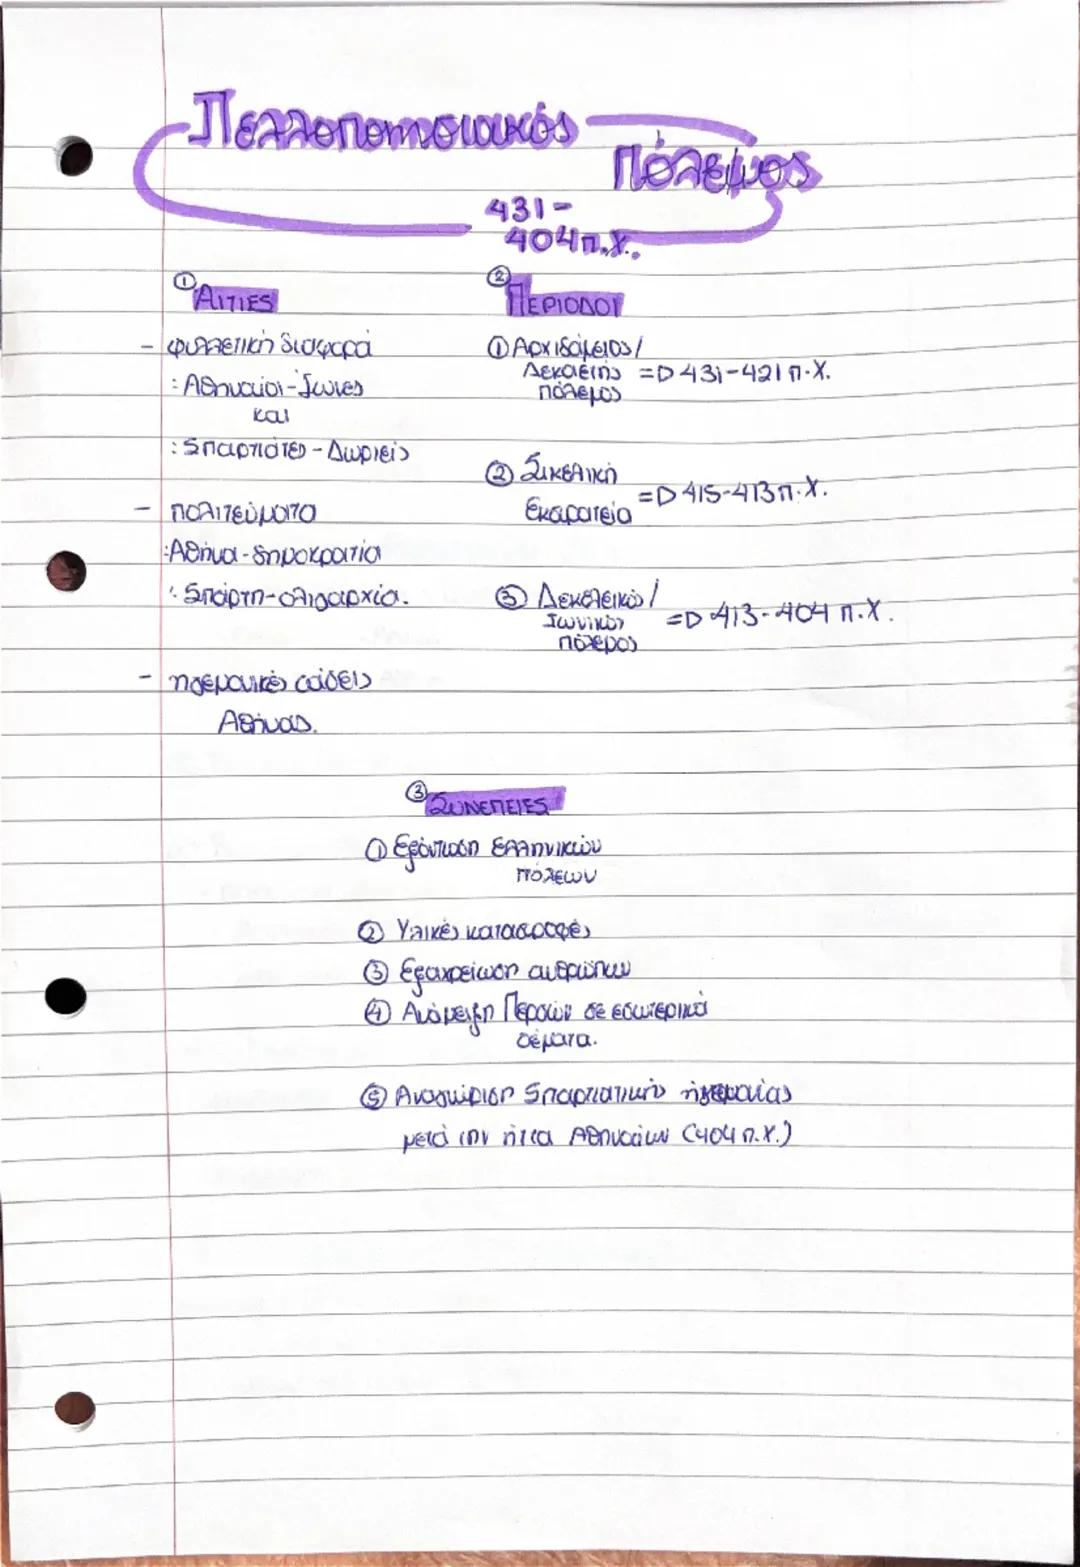 Πελλοποννησιακός
Πόλεμος
431-
404 π.Χ.
① ΑΙΤΙΕΣ
- φυλλετική διαφορά
: Αθηναίοι - Ίωνες
και
: Σπαρτιάτες - Δωριείς
- πολιτεύματα
: Αθήνα - δημοκρατία
: Σπάρτη - ολιγαρχία.
- ηγεμονικές τάσεις
Αθήνας.
② ΠΕΡΙΟΔΟΙ
① Αρχιδάμειος /
Δεκαετής => 431-421 π.Χ.
πόλεμος
② Σικελική
=> 415-413 π.Χ.
Εκστρατεία
③ Δεκελεικός /
Ιωνικός => 413-404 π.Χ.
πόλεμος
③ ΣΥΝΕΠΕΙΕΣ
① Εξόντωση ελληνικών
πόλεων
② Υλικές καταστροφές
③ Εξαχρείωση ανθρώπων
④ Ανάμειξη Περσών σε εσωτερικά
θέματα.
⑤ Αναγνώριση Σπαρτιατικής ηγεμονίας
μετά την ήττα Αθηναίων (404 π.Χ.)